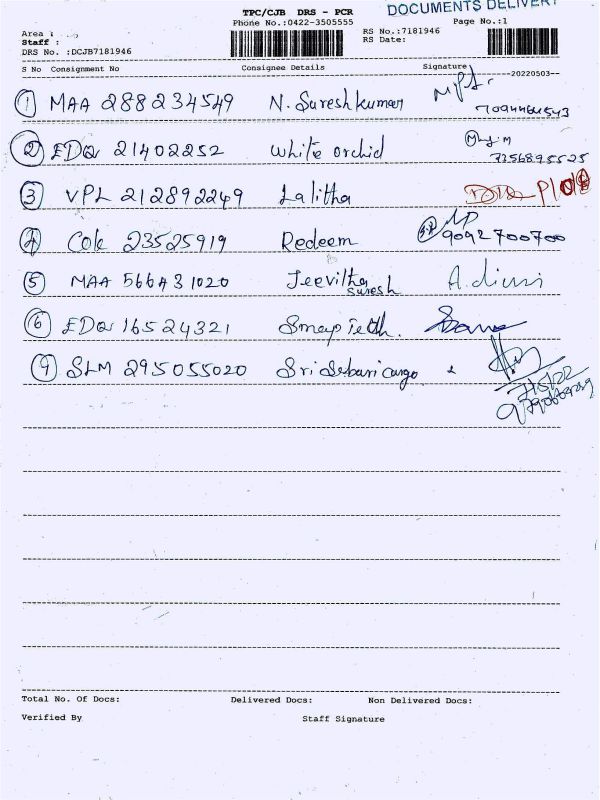 DOCUMENTS DELIVERY
TPC/CJB DRS - PCR
Phone No.:0422-3505555
Page No.:1
Area :
Staff :
DRS No. :DCJB7181946
RS No.:7181946
RS Date:
S No Consignment No Consignee Details Signature
--20220503--
1 MAA 288234549 N. Sureshkumar
7094464543
2 EDQ 21402252 White orchid
7356895525
3 VPL 212892249 Lalitha
4 COK 23525919 Redeem 9092700700
5 MAA 566431020 Jeevitha Suresh
6 EDQ 16524321
9 SLM 295055020 Sri Sabari cargo
Total No. Of Docs: Delivered Docs: Non Delivered Docs:
Verified By Staff Signature